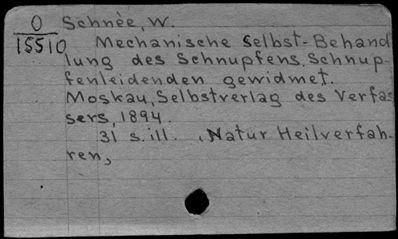 O Schnèe, W.
15510 Mechanische Selbst-Behand
lung des Schnupfens. Schnup-
fenleidenden gewidmet.
Moskau, Selbstverlag des Verfas
sers, 1894.
31 s. ill. (Natur Heilverfah-
ren,